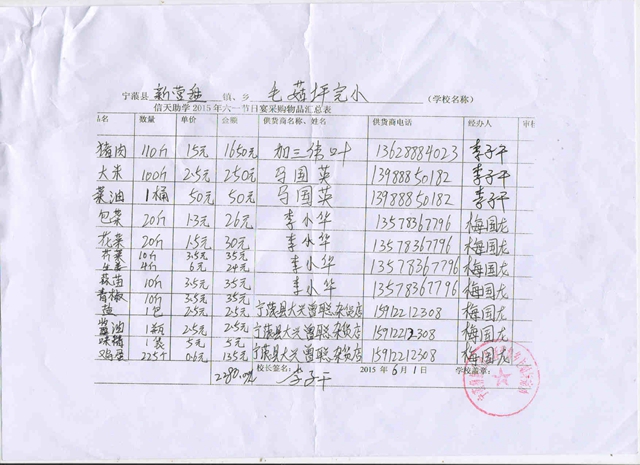 宁蒗县 新营盘 镇、乡 毛菇坪完小 (学校名称)
信天助学2015年六一节日宴采购物品汇总表
品名 数量 单价 金额 供货商名称、姓名 供货商电话 经办人 审核
猪肉 110斤 15元 1650元 加三 叶 13628884023 李子干
大米 100斤 2.5元 250元 马国英 13988850182 李子干
菜油 1桶 50元 50元 马国英 13988850182 李子干
包菜 20斤 1.3元 26元 李小华 13578367796 梅国龙
花菜 20斤 1.5元 30元 李小华 13578367796 梅国龙
芹菜 10斤 3.5元 35元
4斤 6元 24元 李小华 13578367796 梅国龙
蒜苗 10斤 3.5元 35元 李小华 13578367796 梅国龙
青椒 10斤 3.5元 35元
盐 1包 2.5元 2.5元 宁蒗县大兴曾聪杂货店 15912212308 梅国龙
酱油 1瓶 2.5元 2.5元 宁蒗县大兴曾聪杂货店 15912212308 梅国龙
味精 1袋 5元 5元 宁蒗县大兴曾聪杂货店 15912212308 梅国龙
鸡蛋 225个 0.6元 135元
2280.0元 校长签名: 李子干 2015年6月1日 学校盖章: